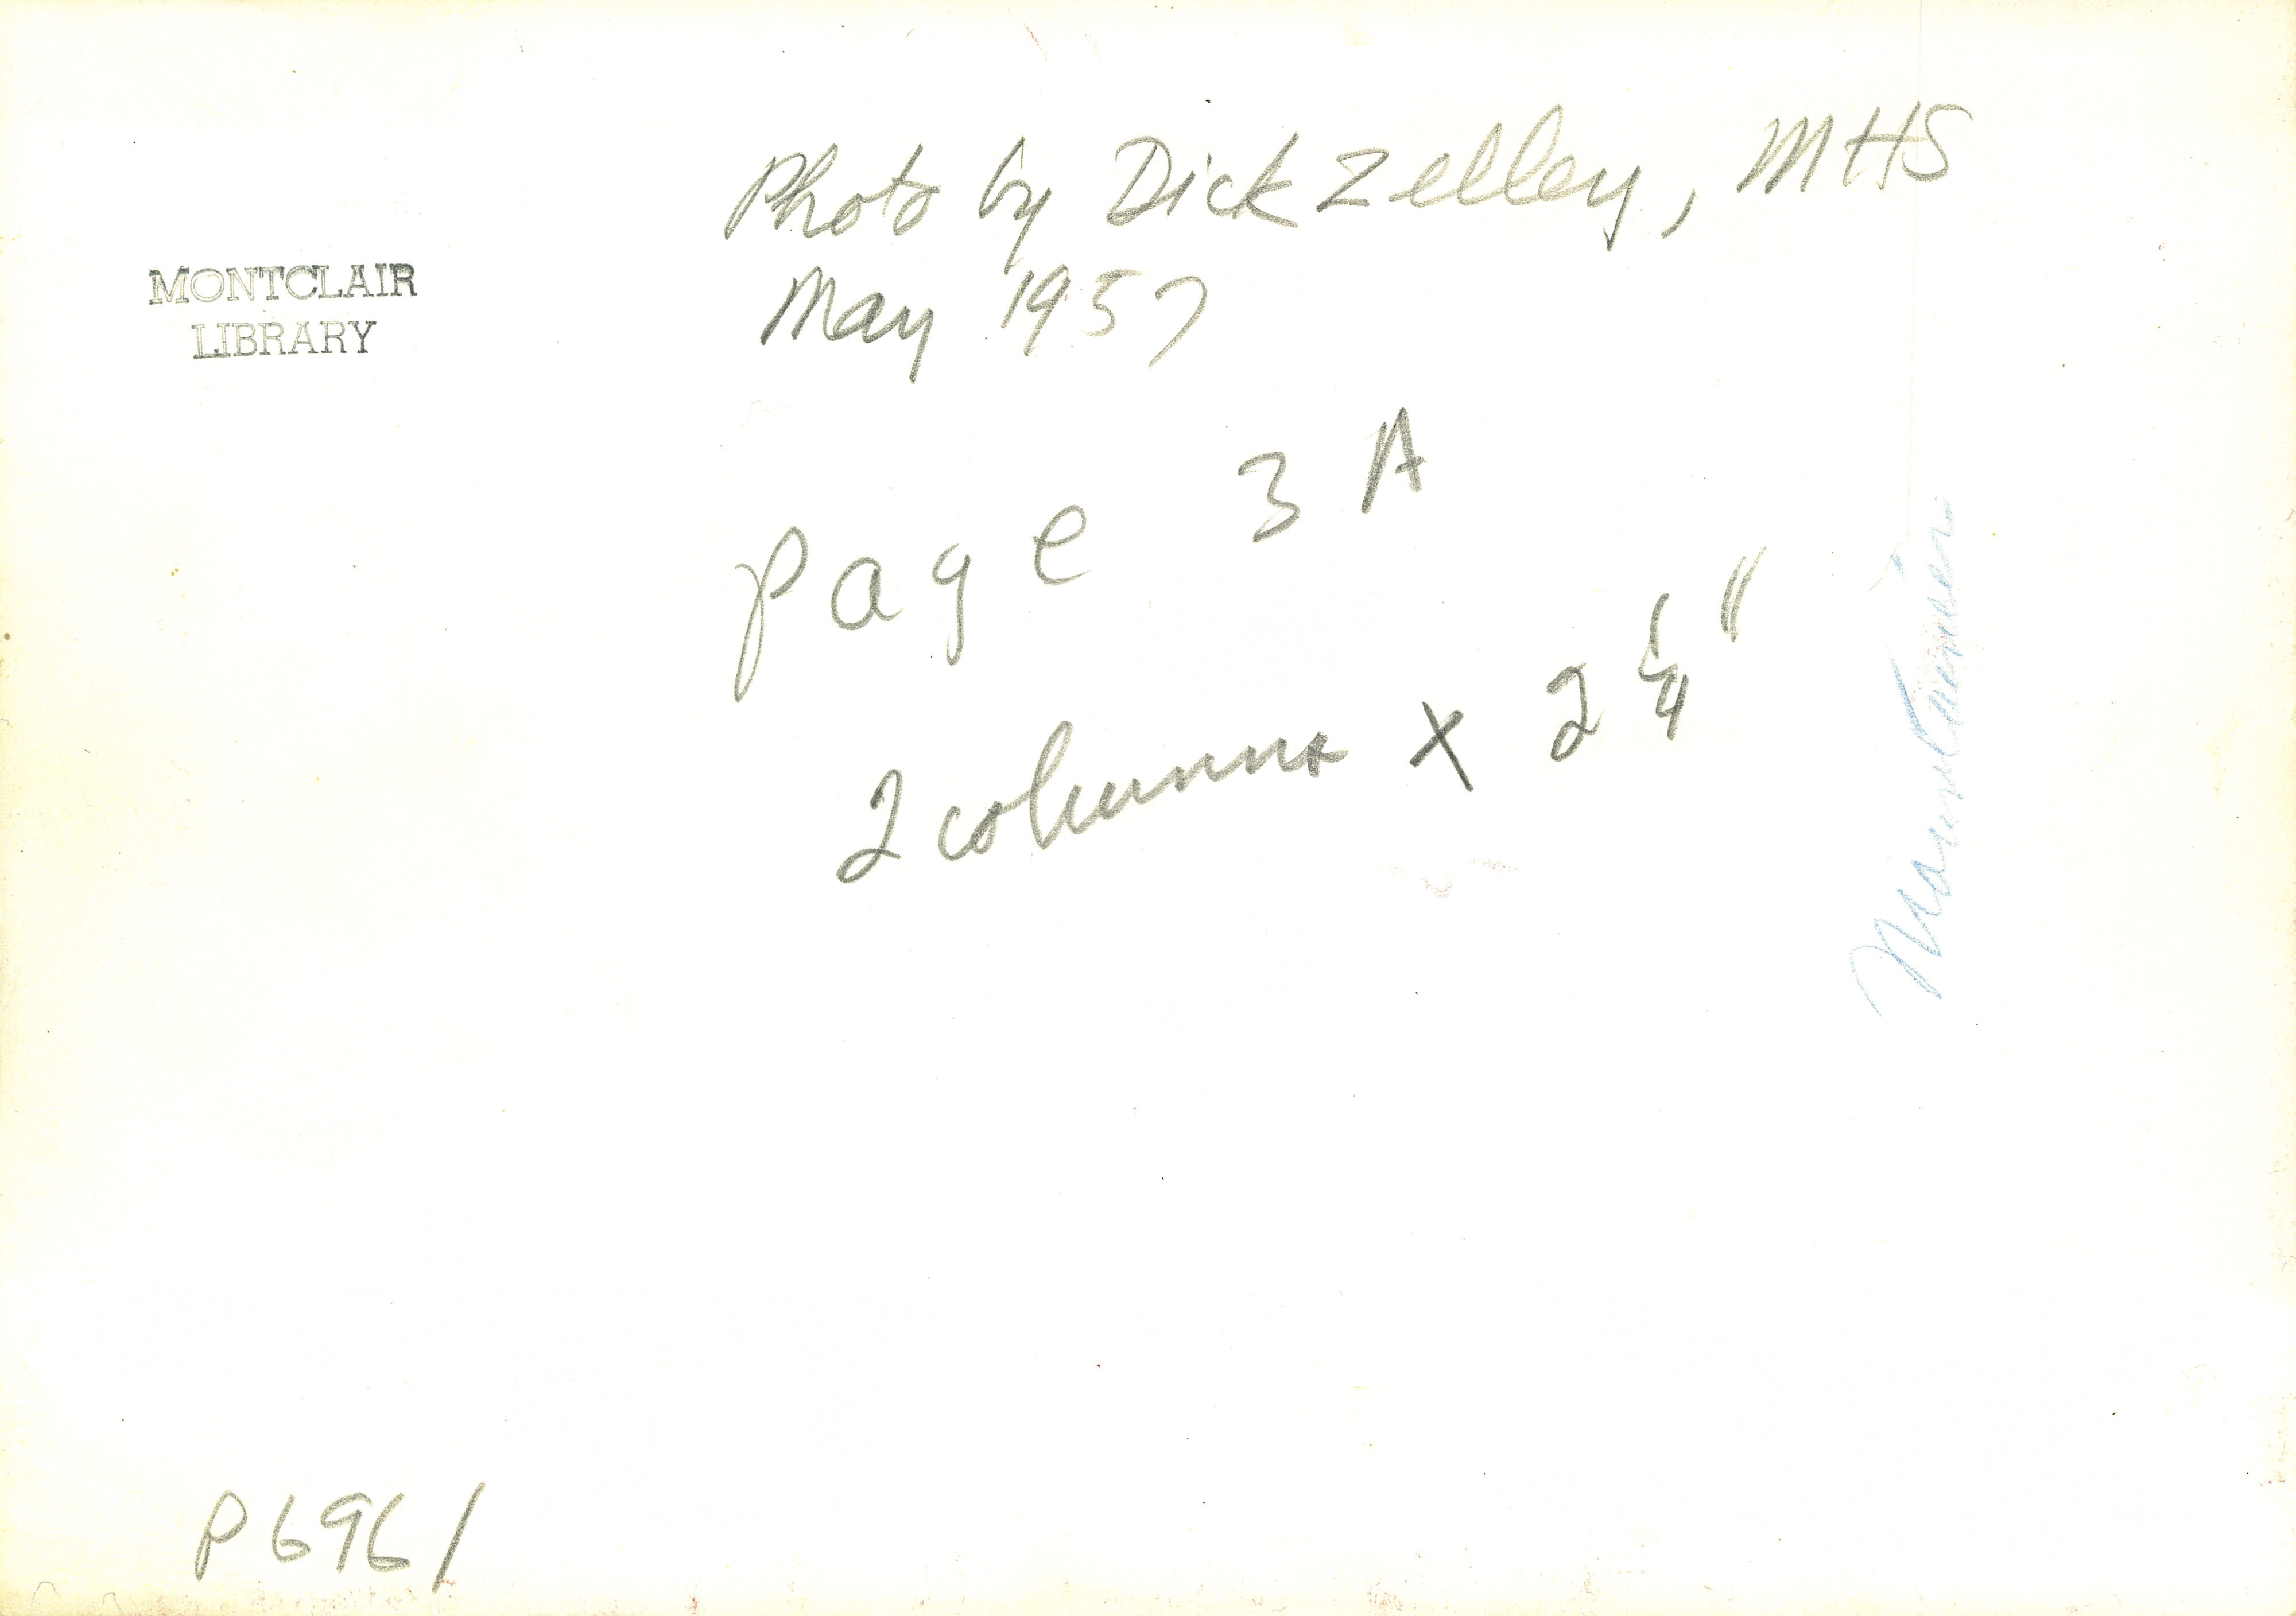 Photo by Dick Zelley, MHS
May 1957
MONTCLAIR
LIBRARY
page 3 A
2 columns x 2 1/4"
P6961